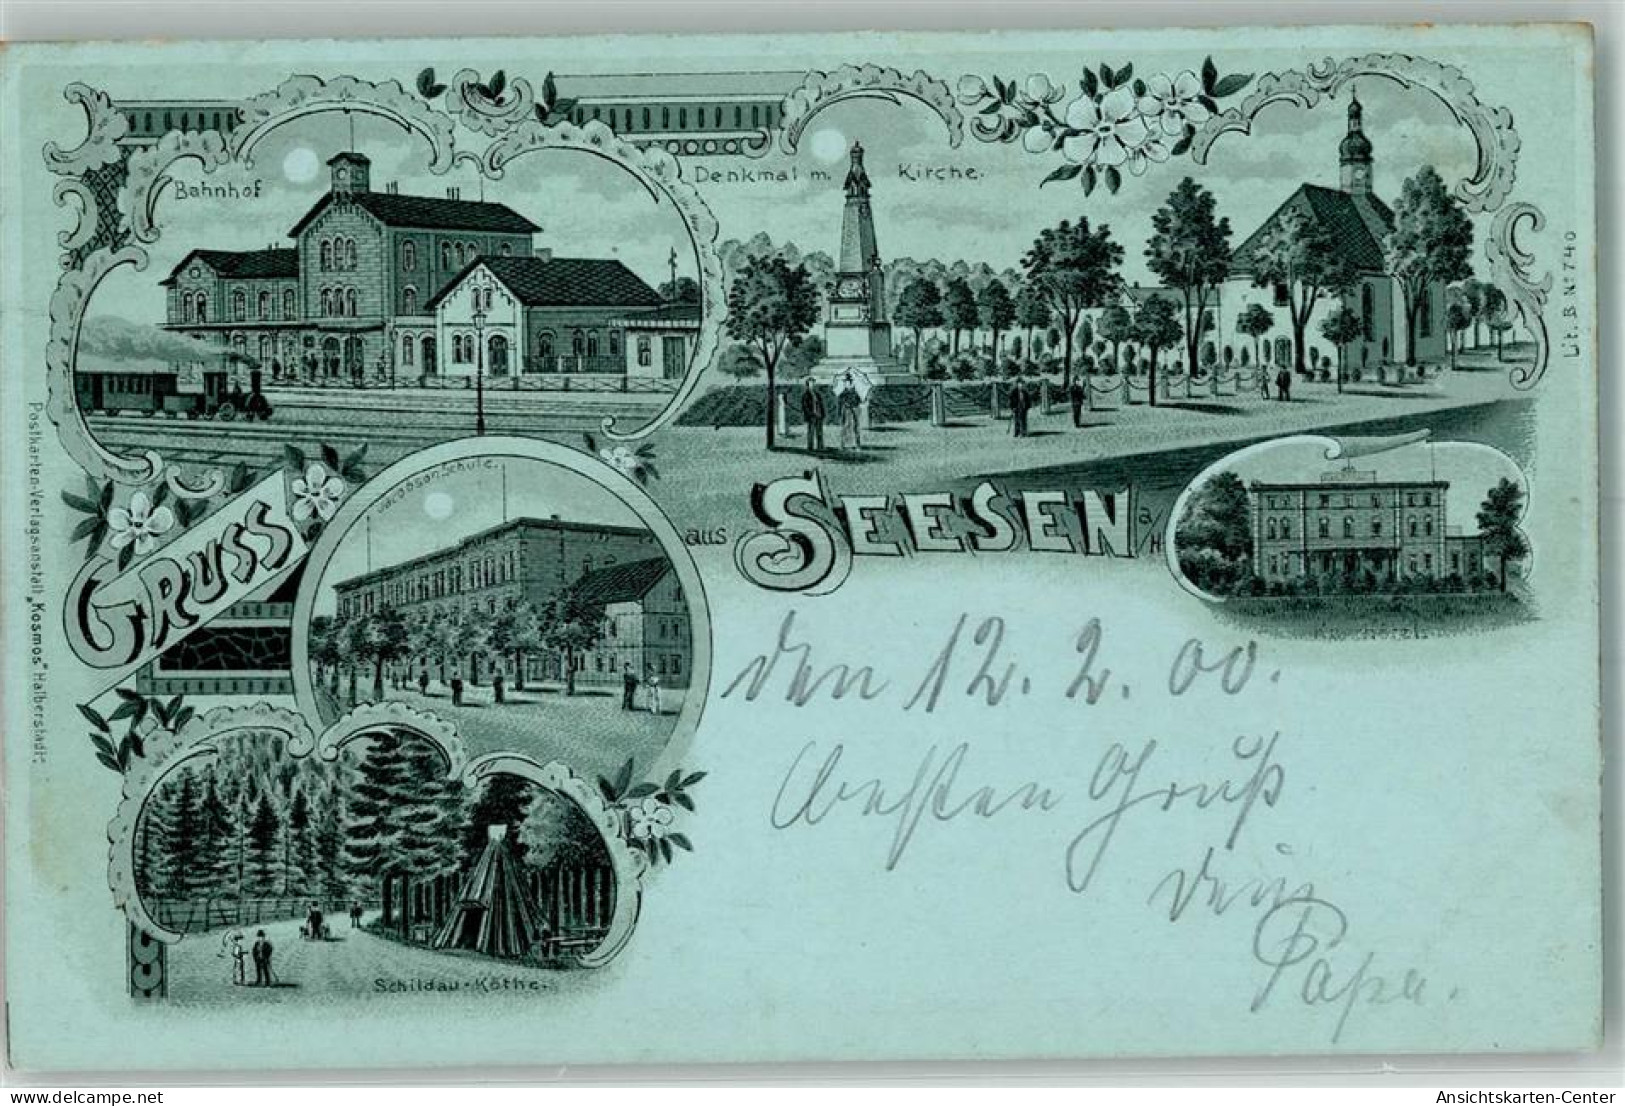 Bahnhof
Denkmal m. Kirche.
Lit. B. No 740
Postkarten-Verlagsanstalt „Kosmos" Halberstadt.
Jacobson Schule.
GRUSS
aus SEESEN a/H
Kurhotel.
Schildau-Köthe.
den 12. 2. 00.
besten Gruß
dein
Papa.
delcampe.net
Ansichtskarten-Center